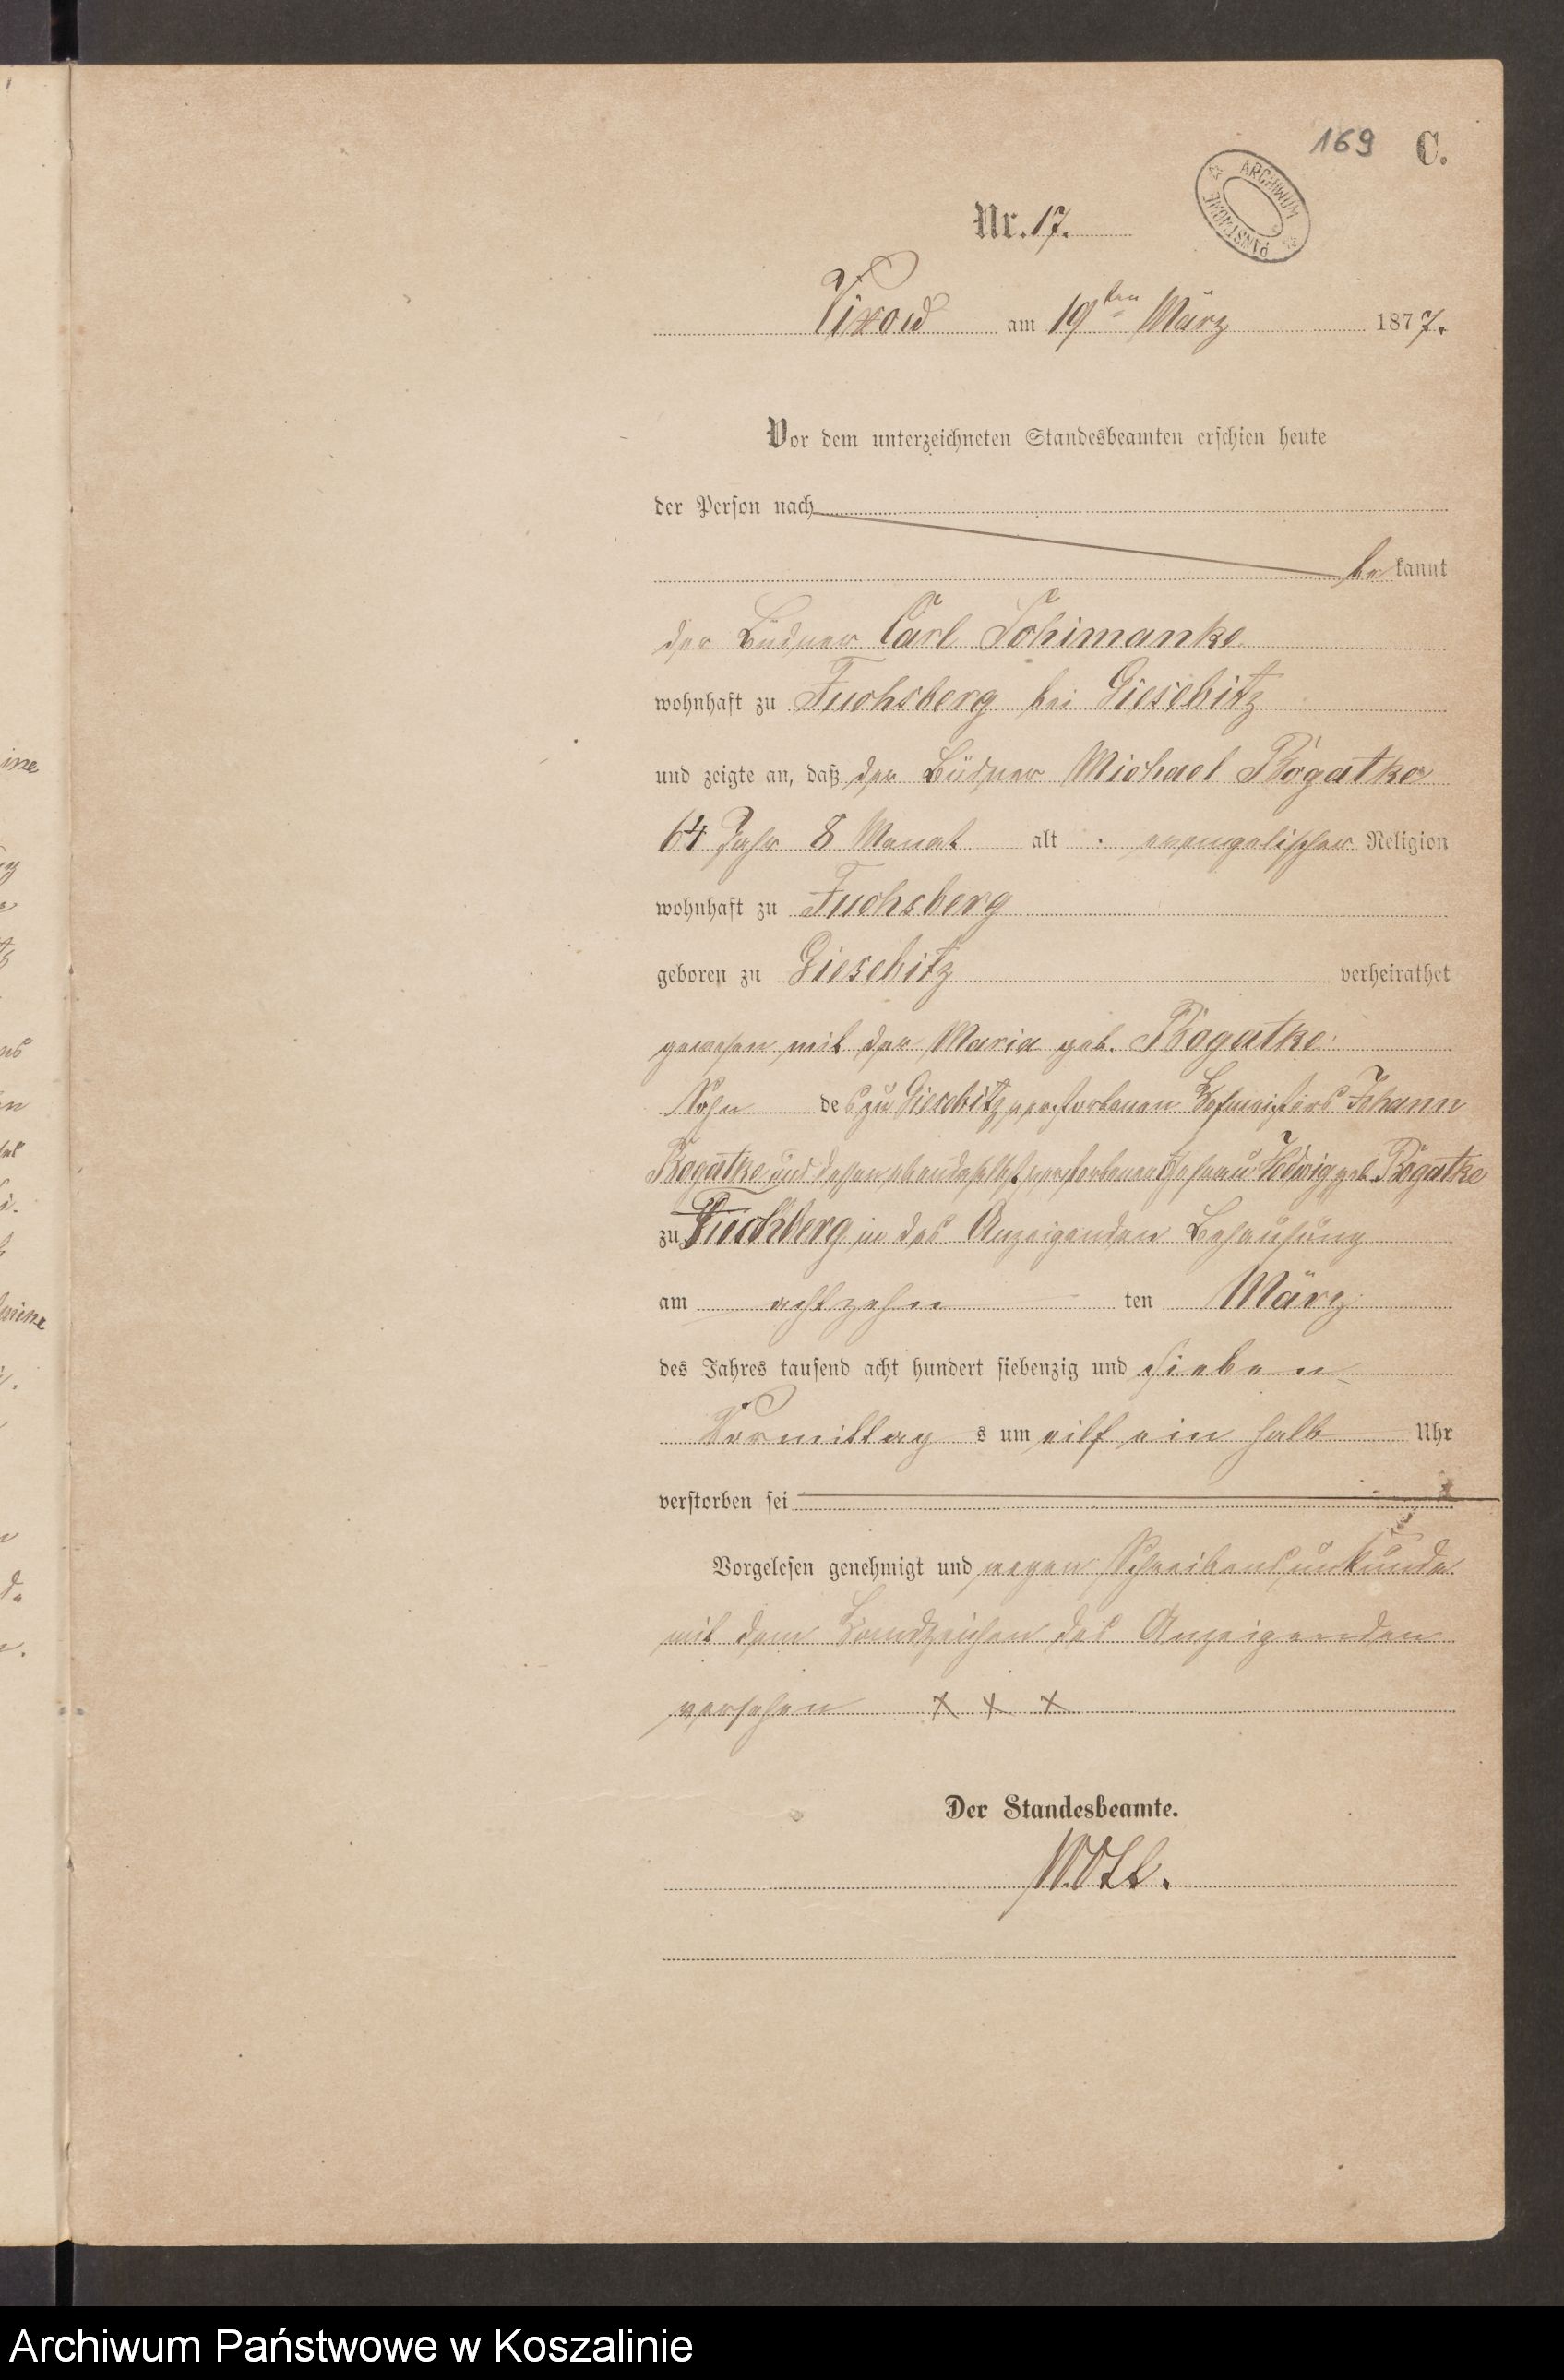 169 C.
ARCHIWUM PAŃSTWOWE
Nr. 17.
Vixow am 19ten März 1877.
Vor dem unterzeichneten Standesbeamten erschien heute
der Person nach
bekannt
der Büdner Carl Schimanke
wohnhaft zu Fuchsberg bei Giesebitz
und zeigte an, daß der Büdner Michael Rogatke
64 Jahr 8 Monat alt evangelischer Religion
wohnhaft zu Fuchsberg
geboren zu Giesebitz verheirathet
gewesen mit der Maria geb. Rogatke
Sohn des zu Giesebitz verstorbenen Hofmeisters Johann
Rogatke und dessen ebendaselbst verstorbenen Ehefrau Hedwig geb. Rogatke
zu Fuchberg in des Anzeigenden Behausung
am achtzehn ten März
des Jahres tausend acht hundert siebenzig und sieben
Vormittag s um eilf ein halb Uhr
verstorben sei
Vorgelesen genehmigt und wegen Schreibensunkunde
mit dem Handzeichen des Anzeigenden
versehen + + +
Der Standesbeamte.
Archiwum Państwowe w Koszalinie